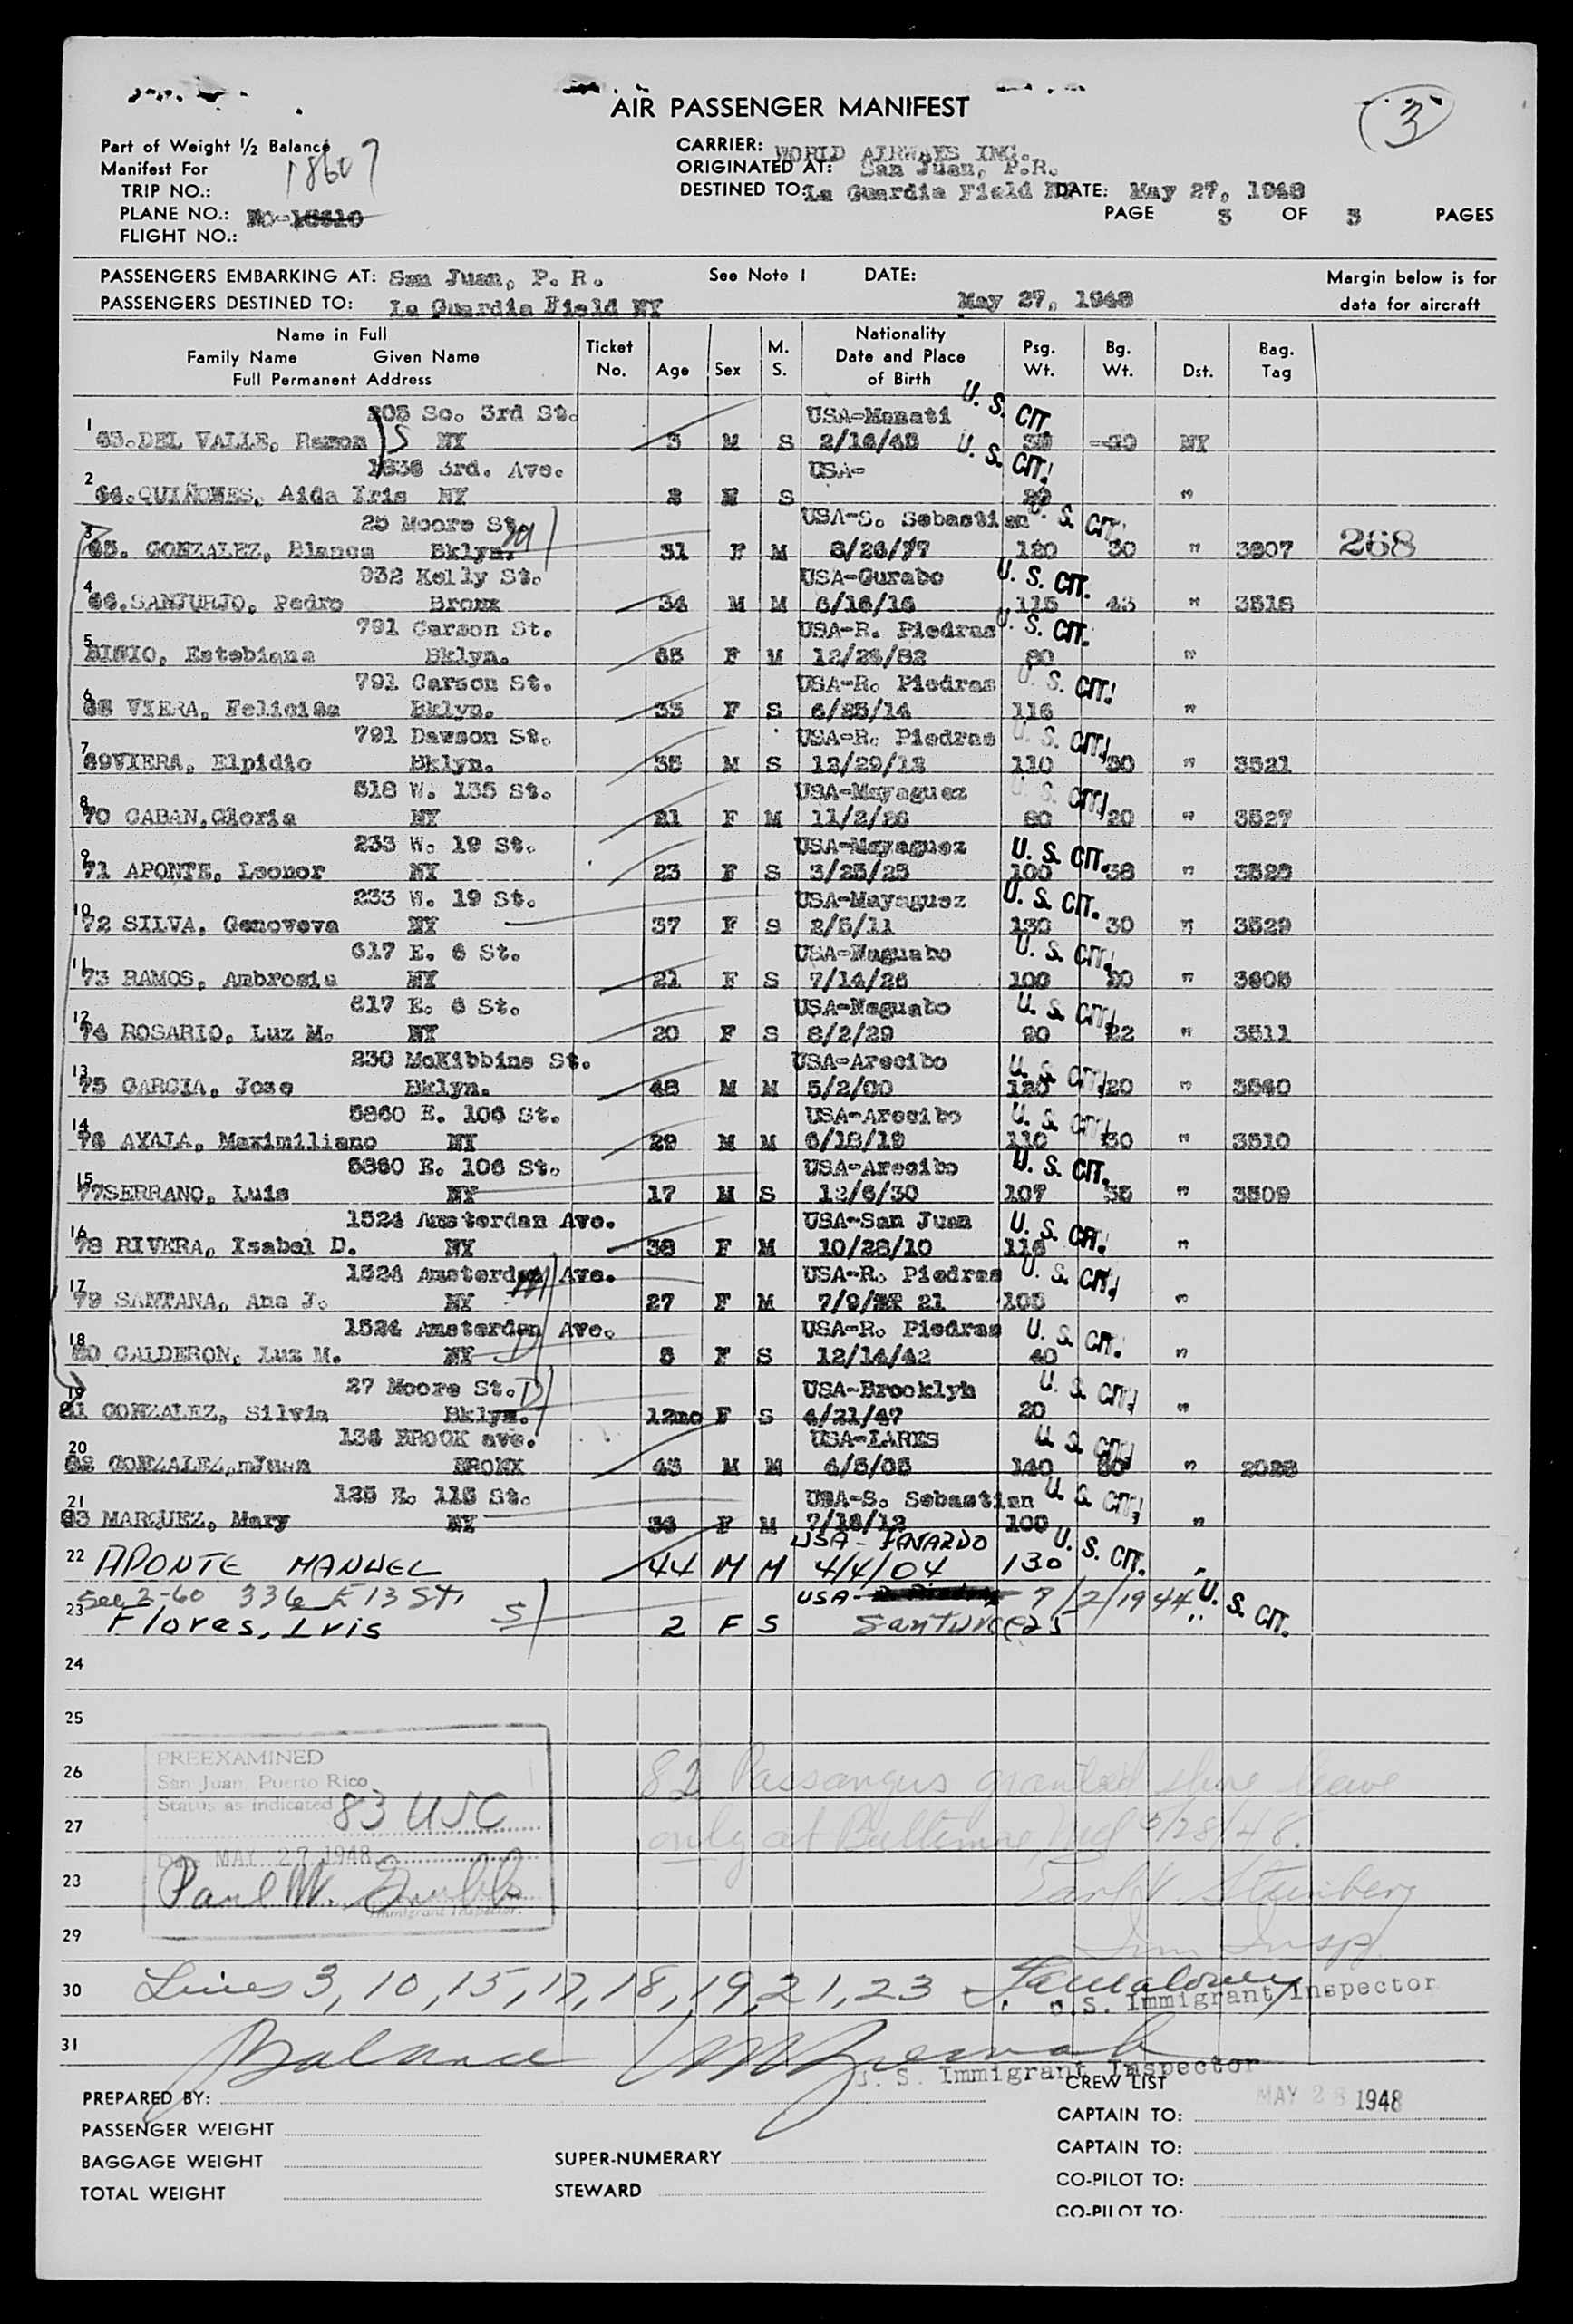 AIR PASSENGER MANIFEST
3
Part of Weight ½ Balance
Manifest For
18607
TRIP NO.:
PLANE NO.: NC-18610
FLIGHT NO.:
CARRIER: WORLD AIRWAYS INC.
ORIGINATED AT: San Juan, P.R.
DESTINED TO: La Guardia Field NY DATE: May 27, 1948
PAGE 3 OF 3 PAGES
PASSENGERS EMBARKING AT: San Juan, P. R. See Note I DATE:
PASSENGERS DESTINED TO: La Guardia Field NY May 27, 1948
Margin below is for
data for aircraft
Name in Full
Family Name Given Name
Full Permanent Address
Ticket No. Age Sex M. S. Nationality Date and Place of Birth Psg. Wt. Bg. Wt. Dst. Bag. Tag
205 So. 3rd St. USA-Manati U. S. CIT.
1 63.DEL VALLE, Ramon S NY 3 M S 2/16/45 30 NY
1838 3rd. Ave. USA- U. S. CIT!
2 64.QUIÑONES, Aida Iris NY 2 F S 20 "
25 Moore St. USA-S. Sebastian U. S. CIT!
3 65. GONZALEZ, Blanca Bklyn. M 31 F M 8/26/17 120 30 " 3807 268
932 Kelly St. USA-Gurabo U. S. CIT.
4 66.SANJURJO, Pedro Bronx 34 M M 6/16/16 115 43 " 3518
791 Carson St. USA-R. Piedras U. S. CIT.
5 Estebiana Bklyn. 65 F M 12/26/82 80 "
791 Carson St. USA-R. Piedras U. S. CIT!
6 68 VIERA, Felicita Bklyn. 33 F S 6/25/14 116 "
791 Dawson St. USA-R. Piedras U. S. CIT!
7 69VIERA, Elpidio Bklyn. 35 M S 12/29/12 110 30 " 3521
518 W. 135 St. USA-Mayaguez U. S. CIT!
8 70 CABAN,Gloria NY 21 F M 11/2/26 80 20 " 3527
233 W. 19 St. USA-Mayaguez U. S. CIT.
9 71 APONTE, Leonor NY 23 F S 3/25/25 100 38 " 3528
233 W. 19 St. USA-Mayaguez U. S. CIT.
10 72 SILVA, Genoveva NY 37 F S 2/5/11 130 30 " 3529
617 E. 6 St. USA-Naguabo U. S. CIT!
11 73 RAMOS, Ambrosia NY 21 F S 7/14/26 100 20 " 3605
617 E. 6 St. USA-Naguabo U. S. CIT!
12 74 ROSARIO, Luz M. NY 20 F S 8/2/29 90 22 " 3511
230 McKibbins St. USA-Arecibo U. S. CIT!
13 75 GARCIA, Jose Bklyn. 48 M M 5/2/00 120 20 " 3540
5860 E. 106 St. USA-Arecibo U. S. CIT!
14 76 AYALA, Maximiliano NY 29 M M 6/18/19 110 30 " 3510
5860 E. 106 St. USA-Arecibo U. S. CIT.
15 77SERRANO, Luis NY 17 M S 12/6/30 107 35 " 3509
1524 Amsterdam Ave. USA-San Juan U. S. CIT!
16 78 RIVERA, Isabel D. NY 38 F M 10/28/10 116 "
1524 Amsterdam Ave. USA-R. Piedras U. S. CIT!
17 79 SANTANA, Ana J. NY M 27 F M 7/9/ 21 105 "
1524 Amsterdam Ave. USA-R. Piedras U. S. CIT!
18 80 CALDERON, Luz M. NY D 5 F S 12/14/42 40 "
27 Moore St. D USA-Brooklyn U. S. CIT!
19 81 GONZALEZ, Silvia Bklyn. 12mo F S 4/21/47 20 "
138 BROOK ave. USA-LARES U. S. CIT!
20 82 GONZALEZ,mJuan BRONX 43 M M 4/5/05 140 30 " 2028
125 E. 115 St. USA-S. Sebastian U. S. CIT!
21 83 MARQUEZ, Mary NY 36 F M 7/16/12 100 "
USA - FAJARDO U. S. CIT.
22 APONTE MANUEL 44 M M 4/4/04 130 "
See 2-60 336 E 13 St. USA- 7/2/1944 U. S. CIT.
23 Flores, Iris S 2 F S Santurce 25 "
24
25
PREEXAMINED
San Juan, Puerto Rico
26
Status as indicated 83 USC
82 Passengers granted shore leave
27
only at Baltimore, Md 5/28/48.
Date MAY 27 1948
28
Paul W.
Immigrant Inspector.
Earl V. Steinberg
29
Imm Insp.
30 Lines 3, 10, 15, 17, 18, 19, 21, 23
U.S. Immigrant Inspector
31 Balance
U. S. Immigrant Inspector
MAY 28 1948
PREPARED BY:
PASSENGER WEIGHT
BAGGAGE WEIGHT
TOTAL WEIGHT
SUPER-NUMERARY
STEWARD
CREW LIST
CAPTAIN TO:
CAPTAIN TO:
CO-PILOT TO:
CO-PILOT TO: